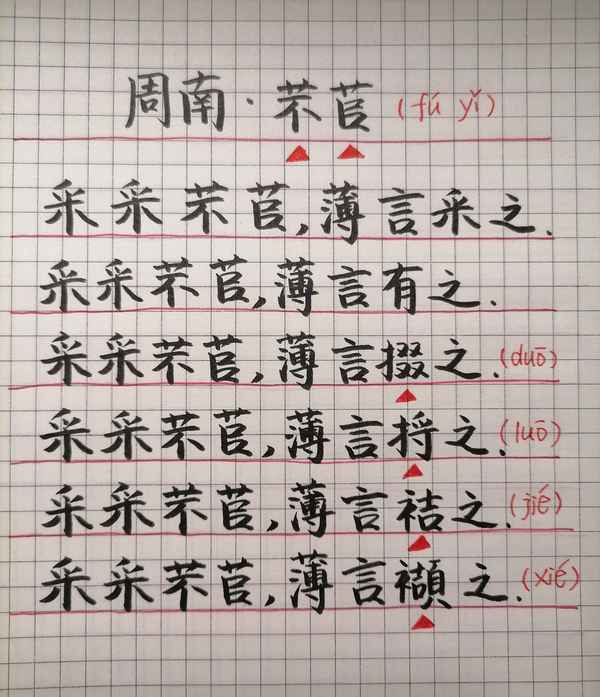 周南·芣苢(fú yǐ)
采采芣苢,薄言采之.
采采芣苢,薄言有之.
采采芣苢,薄言掇之.(duō)
采采芣苢,薄言捋之.(luō)
采采芣苢,薄言袺之.(jié)
采采芣苢,薄言襭之.(xié)